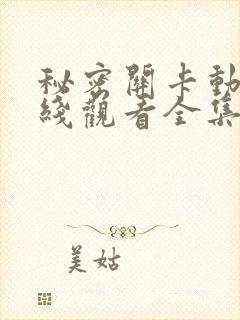 秘密關卡動
綫觀看全集
美姑